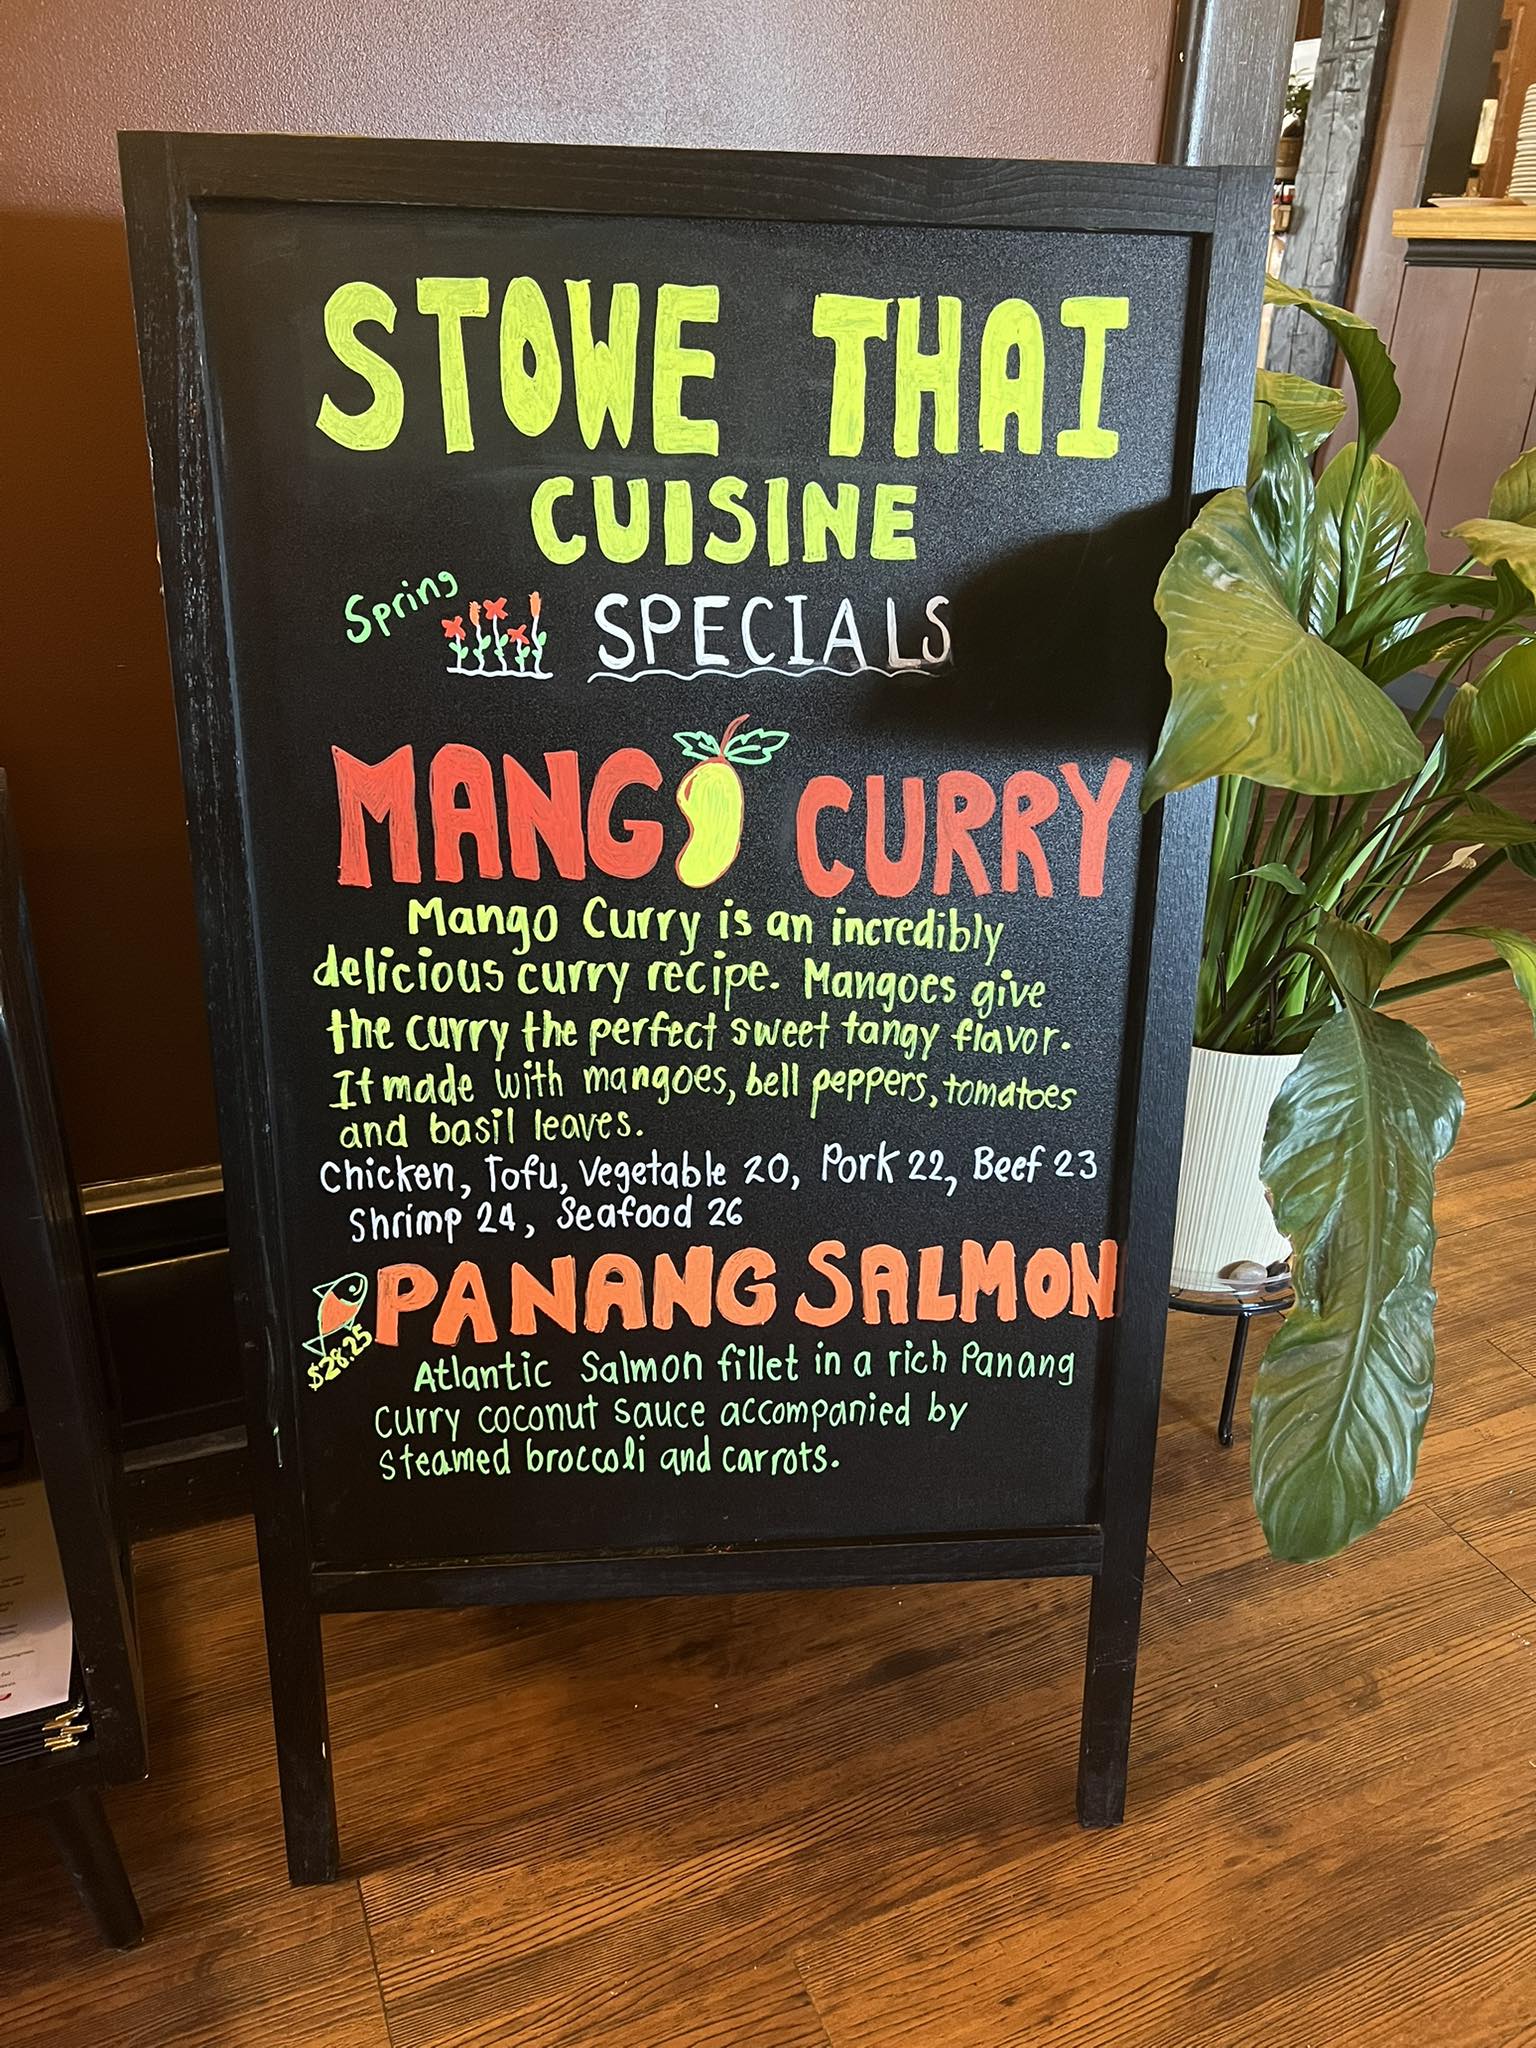 STOWE THAI
CUISINE
Spring
SPECIALS
MANGO CURRY
Mango Curry is an incredibly
delicious curry recipe. Mangoes give
the curry the perfect sweet tangy flavor.
It made with mangoes, bell peppers, tomatoes
and basil leaves.
Chicken, Tofu, Vegetable 20, Pork 22, Beef 23
Shrimp 24, Seafood 26
PANANG SALMON
$28.25
Atlantic Salmon fillet in a rich Panang
Curry coconut sauce accompanied by
steamed broccoli and carrots.